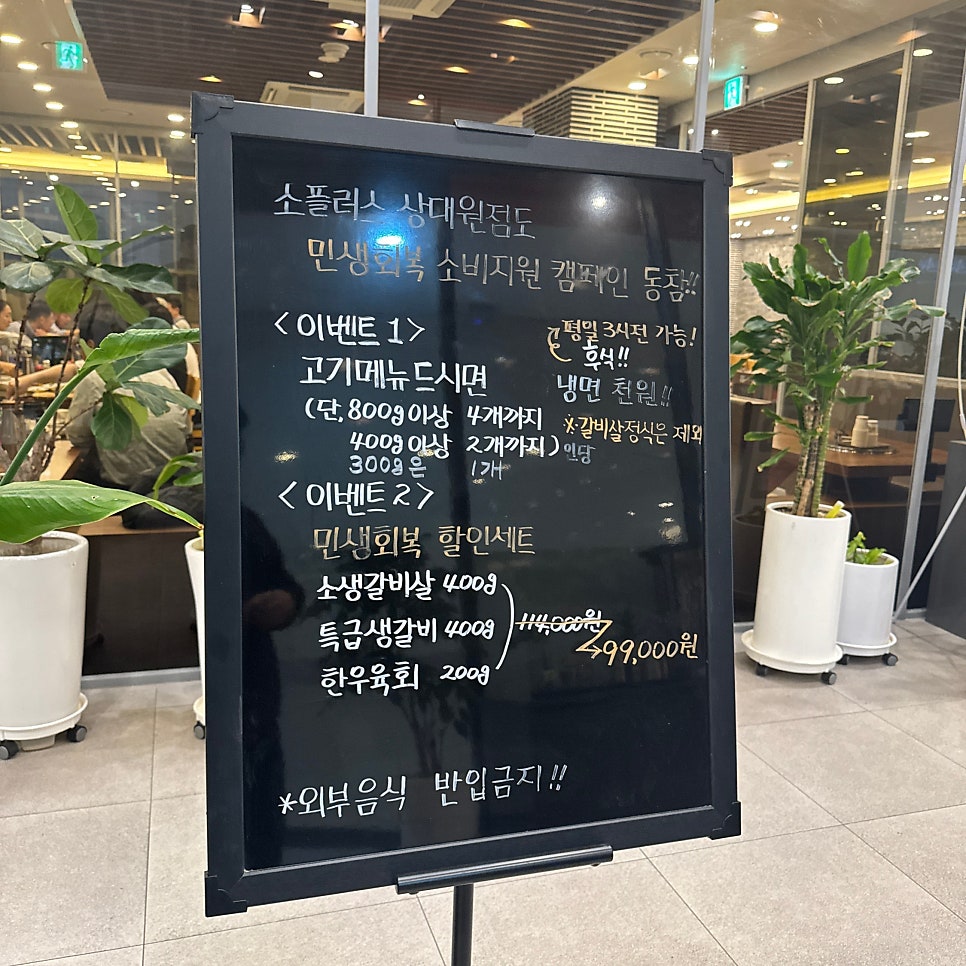 소플러스 상대원점도
민생회복 소비지원 캠페인 동참!!
<이벤트 1>
평일 3시전 가능!
고기메뉴 드시면
후식!!
냉면 천원!!
(단, 800g이상 4개까지
※갈비살정식은 제외
400g이상 2개까지) 인당
300g은 1개
<이벤트 2>
민생회복 할인세트
소생갈비살 400g
특급생갈비 400g
114,000원
99,000원
한우육회 200g
*외부음식 반입금지!!